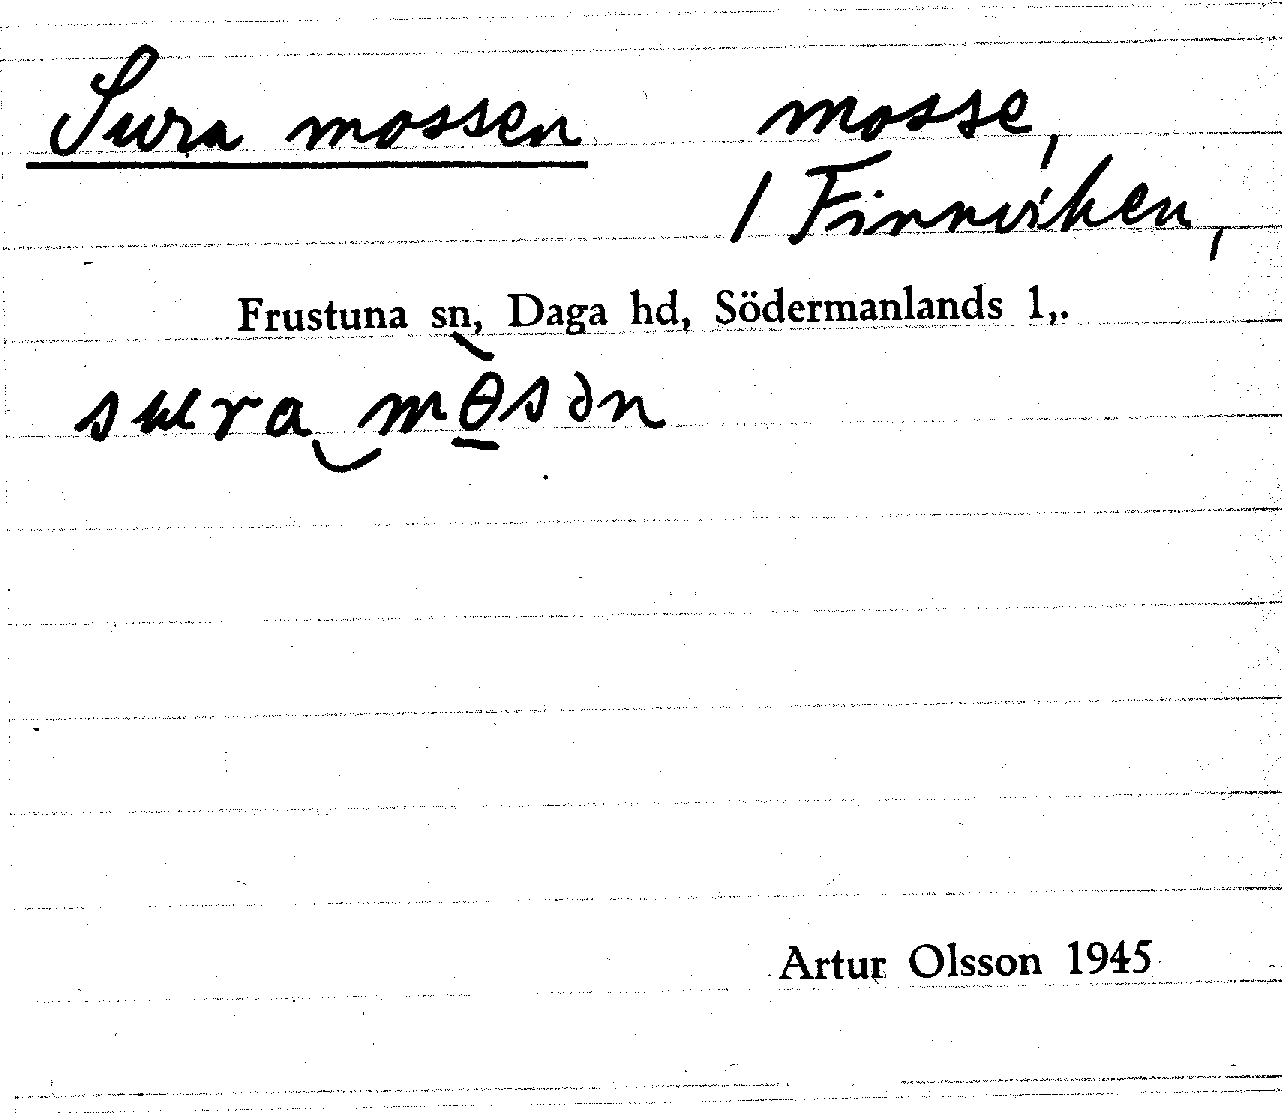 Sura mossen mosse,
/ Finnviken,
Frustuna sn, Daga hd, Södermanlands l,.
sura mὸsən
Artur Olsson 1945